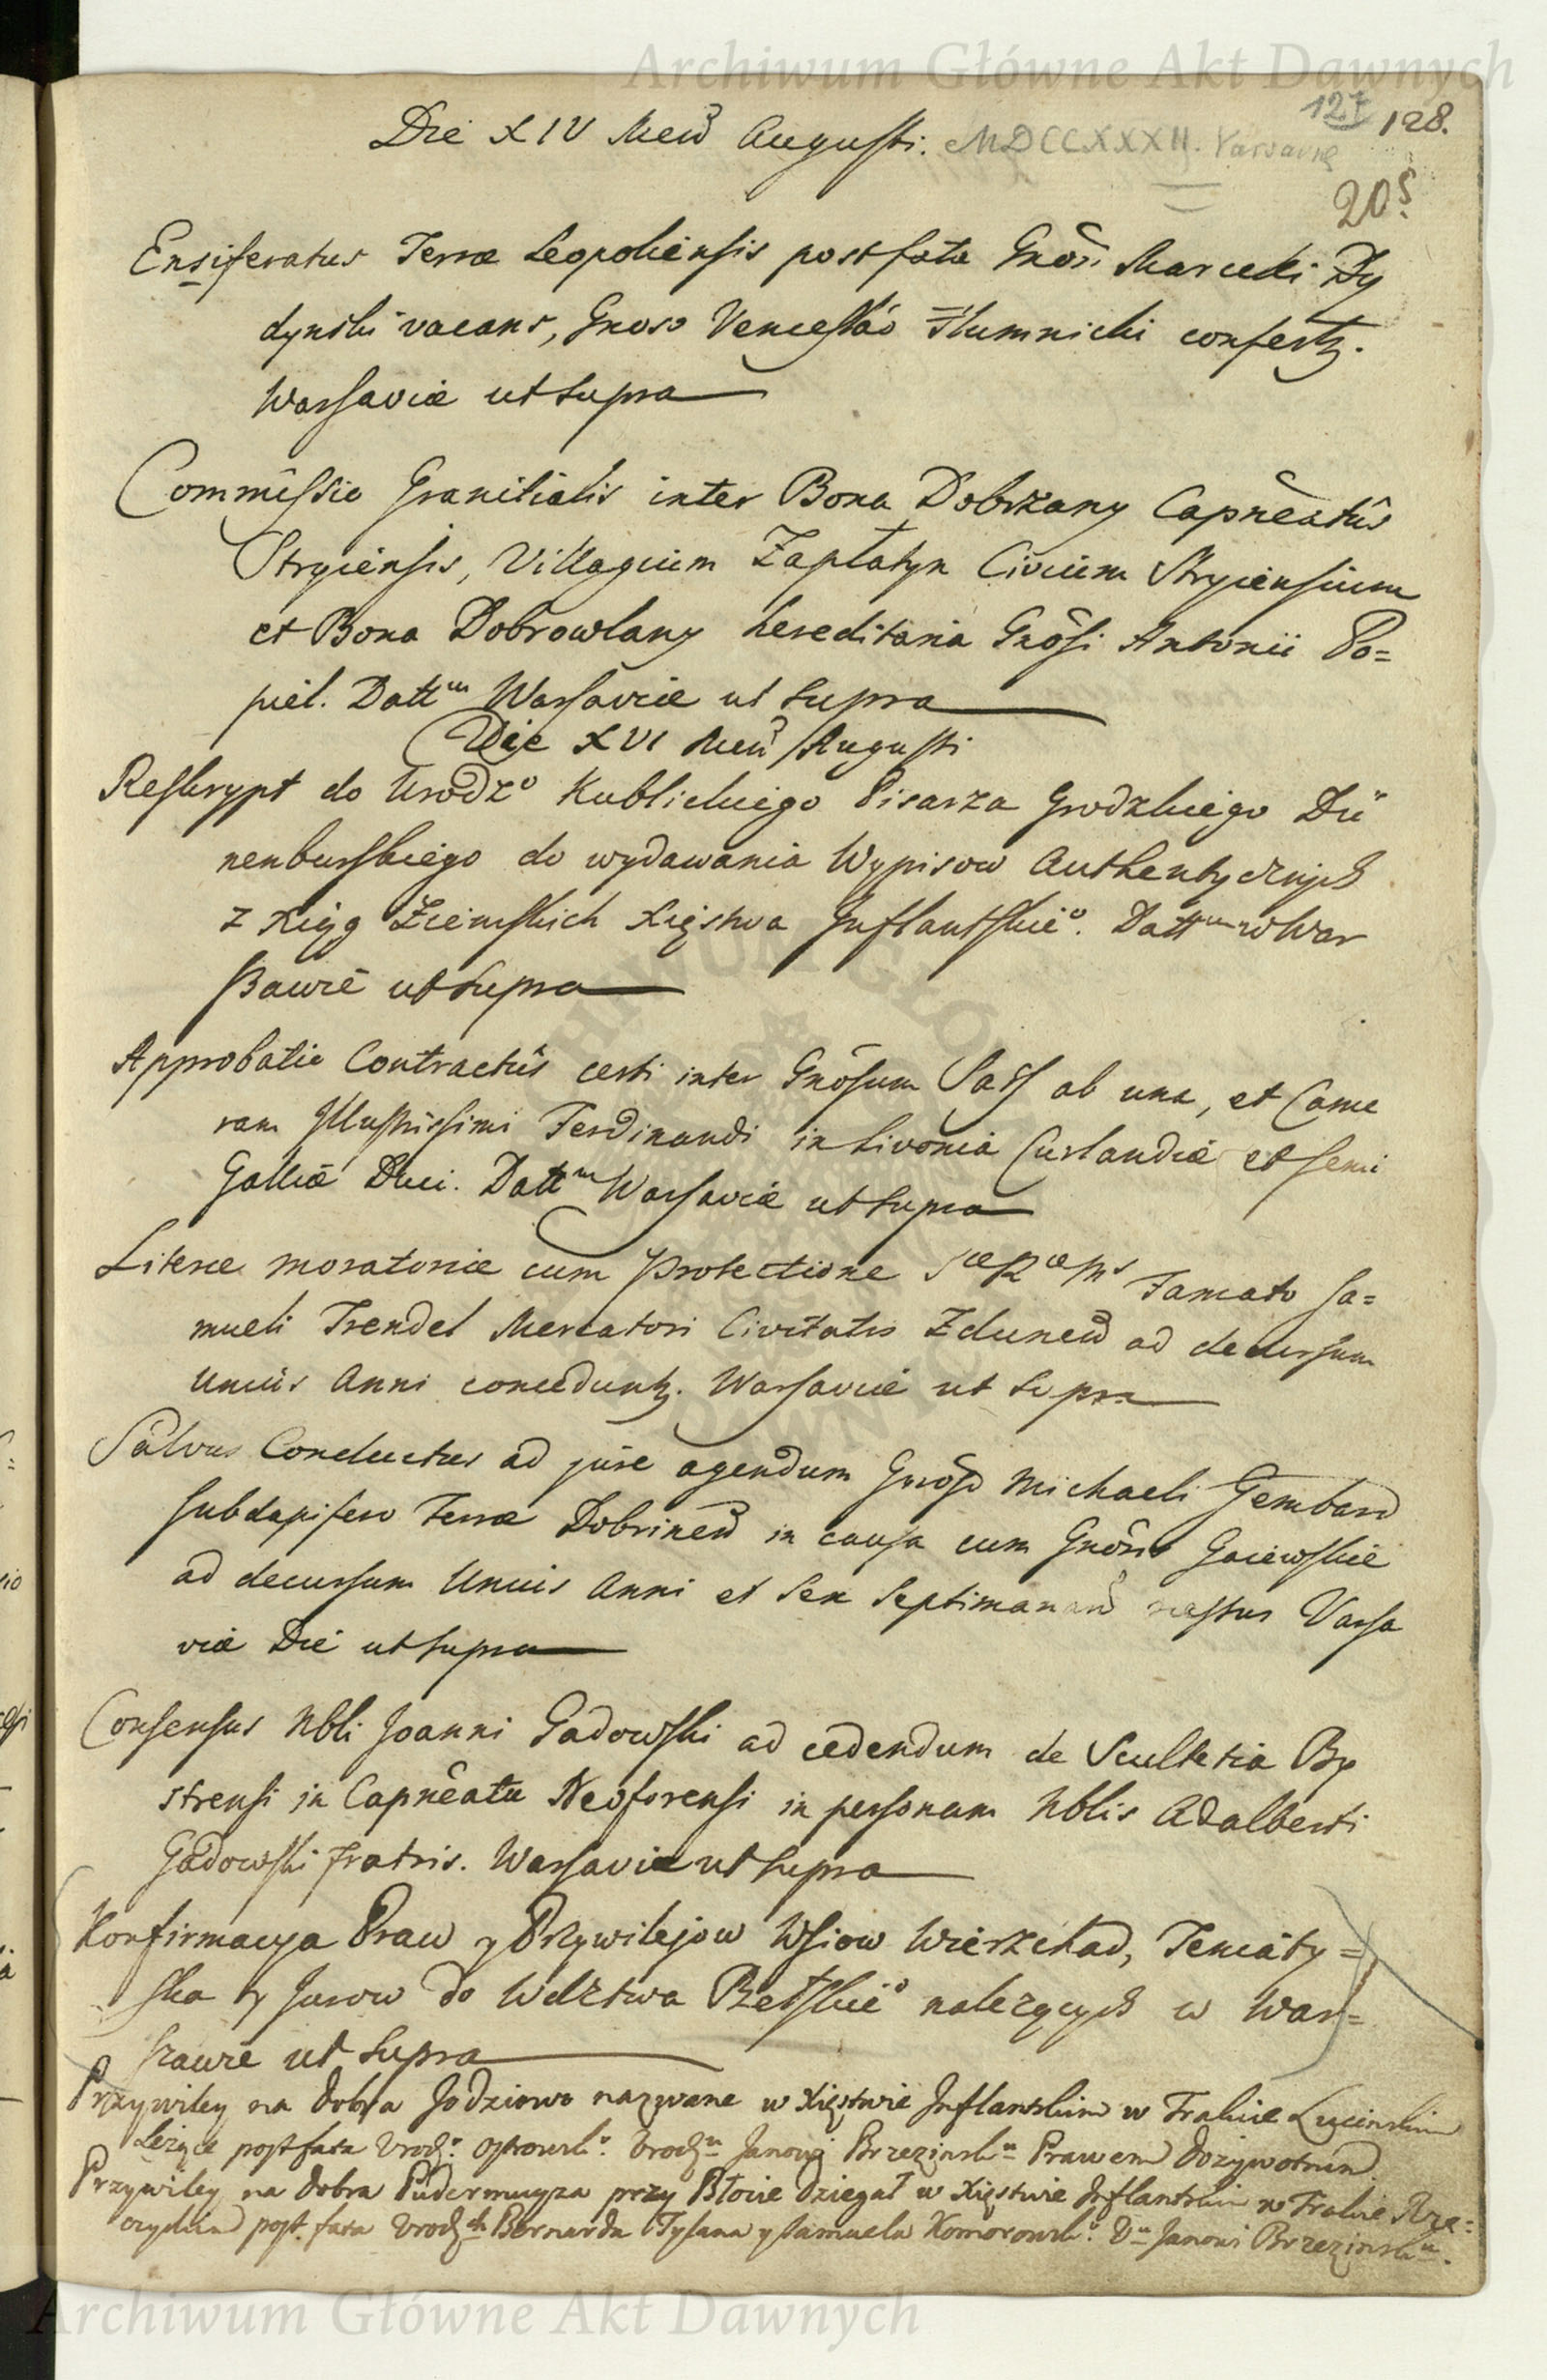 Archiwum Główne Akt Dawnych
Die XIV Mens Augusti. MDCCXXXII. Varsaviæ
127 128.
205.
Ensiferatus Terræ Leopoliensis post fata Gnosi Marcelli Dy
dynski vacans, Gnoso Venceslao Humnicki confertz.
Warsaviæ ut supra
Commissio Granitialis inter Bona Dobrzany Capneatus
Stryiensis, Villagium Zapłatyn Civium Stryiensium
et Bona Dobrowlany hereditaria Gnosi Antonii Po=
piel. Dattm Warsaviæ ut supra
Die XVI Mens Augusti
Reskrypt do Urodzo Kublickiego Pisarza Grodzkiego Dü
nenburskiego do wydawania Wypisow Authentycznych
z Xiąg Ziemskich Xięstwa Inflantskieo. Dattm w War
szawie ut supra
Approbatio Contractus certi inter Gnosum Sass ab una, et Came
ram Illustrissimi Ferdinandi in Livonia Curlandiæ et Semi
Galliæ Duci. Dattm Warsaviæ ut supra
Literæ moratoriæ cum Protectione SæRæMs Famato Sa=
mueli Trendel Mercatori Civitatis Zdunens ad decursum
Unius Anni conceduntz. Warsaviæ ut supra
Salvus Conductus ad jure agendum Gnoso Michaeli Gembard
Subdapifero Terræ Dobrinens in causa cum Gnosis Gaiewskie
ad decursum Unius Anni et Sex Septimanars Varsa
viæ Die ut supra
Consensus Nbli Joanni Gadowski ad cedendum de Scultetia By
strensi in Capneatu Neoforensi in personam Nblis Adalberti
Gadowski fratris. Warsaviæ ut supra
Konfirmacya Praw y Przywilejow Wsiow Wierzchad, Teniaty=
ska y Jurow do Wdztwa Bełskieo nalezących w War=
szawie ut supra
Przywiley na dobra Jodziowo nazwane w Xięstwie Inflantskim w Trakcie Lucinskim
Leżące post fata Urodz. Ostrowsk. Urodz. Janowi Brzezinsk. Prawem dozywotnim
Przywiley na Dobra Pudermuyza przy Błocie Dziegał w Xięstwie Inflantskim w Trakcie Rze=
czyckim post fata Urodzch Bernarda Tysana y Samuela Komorowsk. Um Janowi Brzezinskm.
Archiwum Główne Akt Dawnych